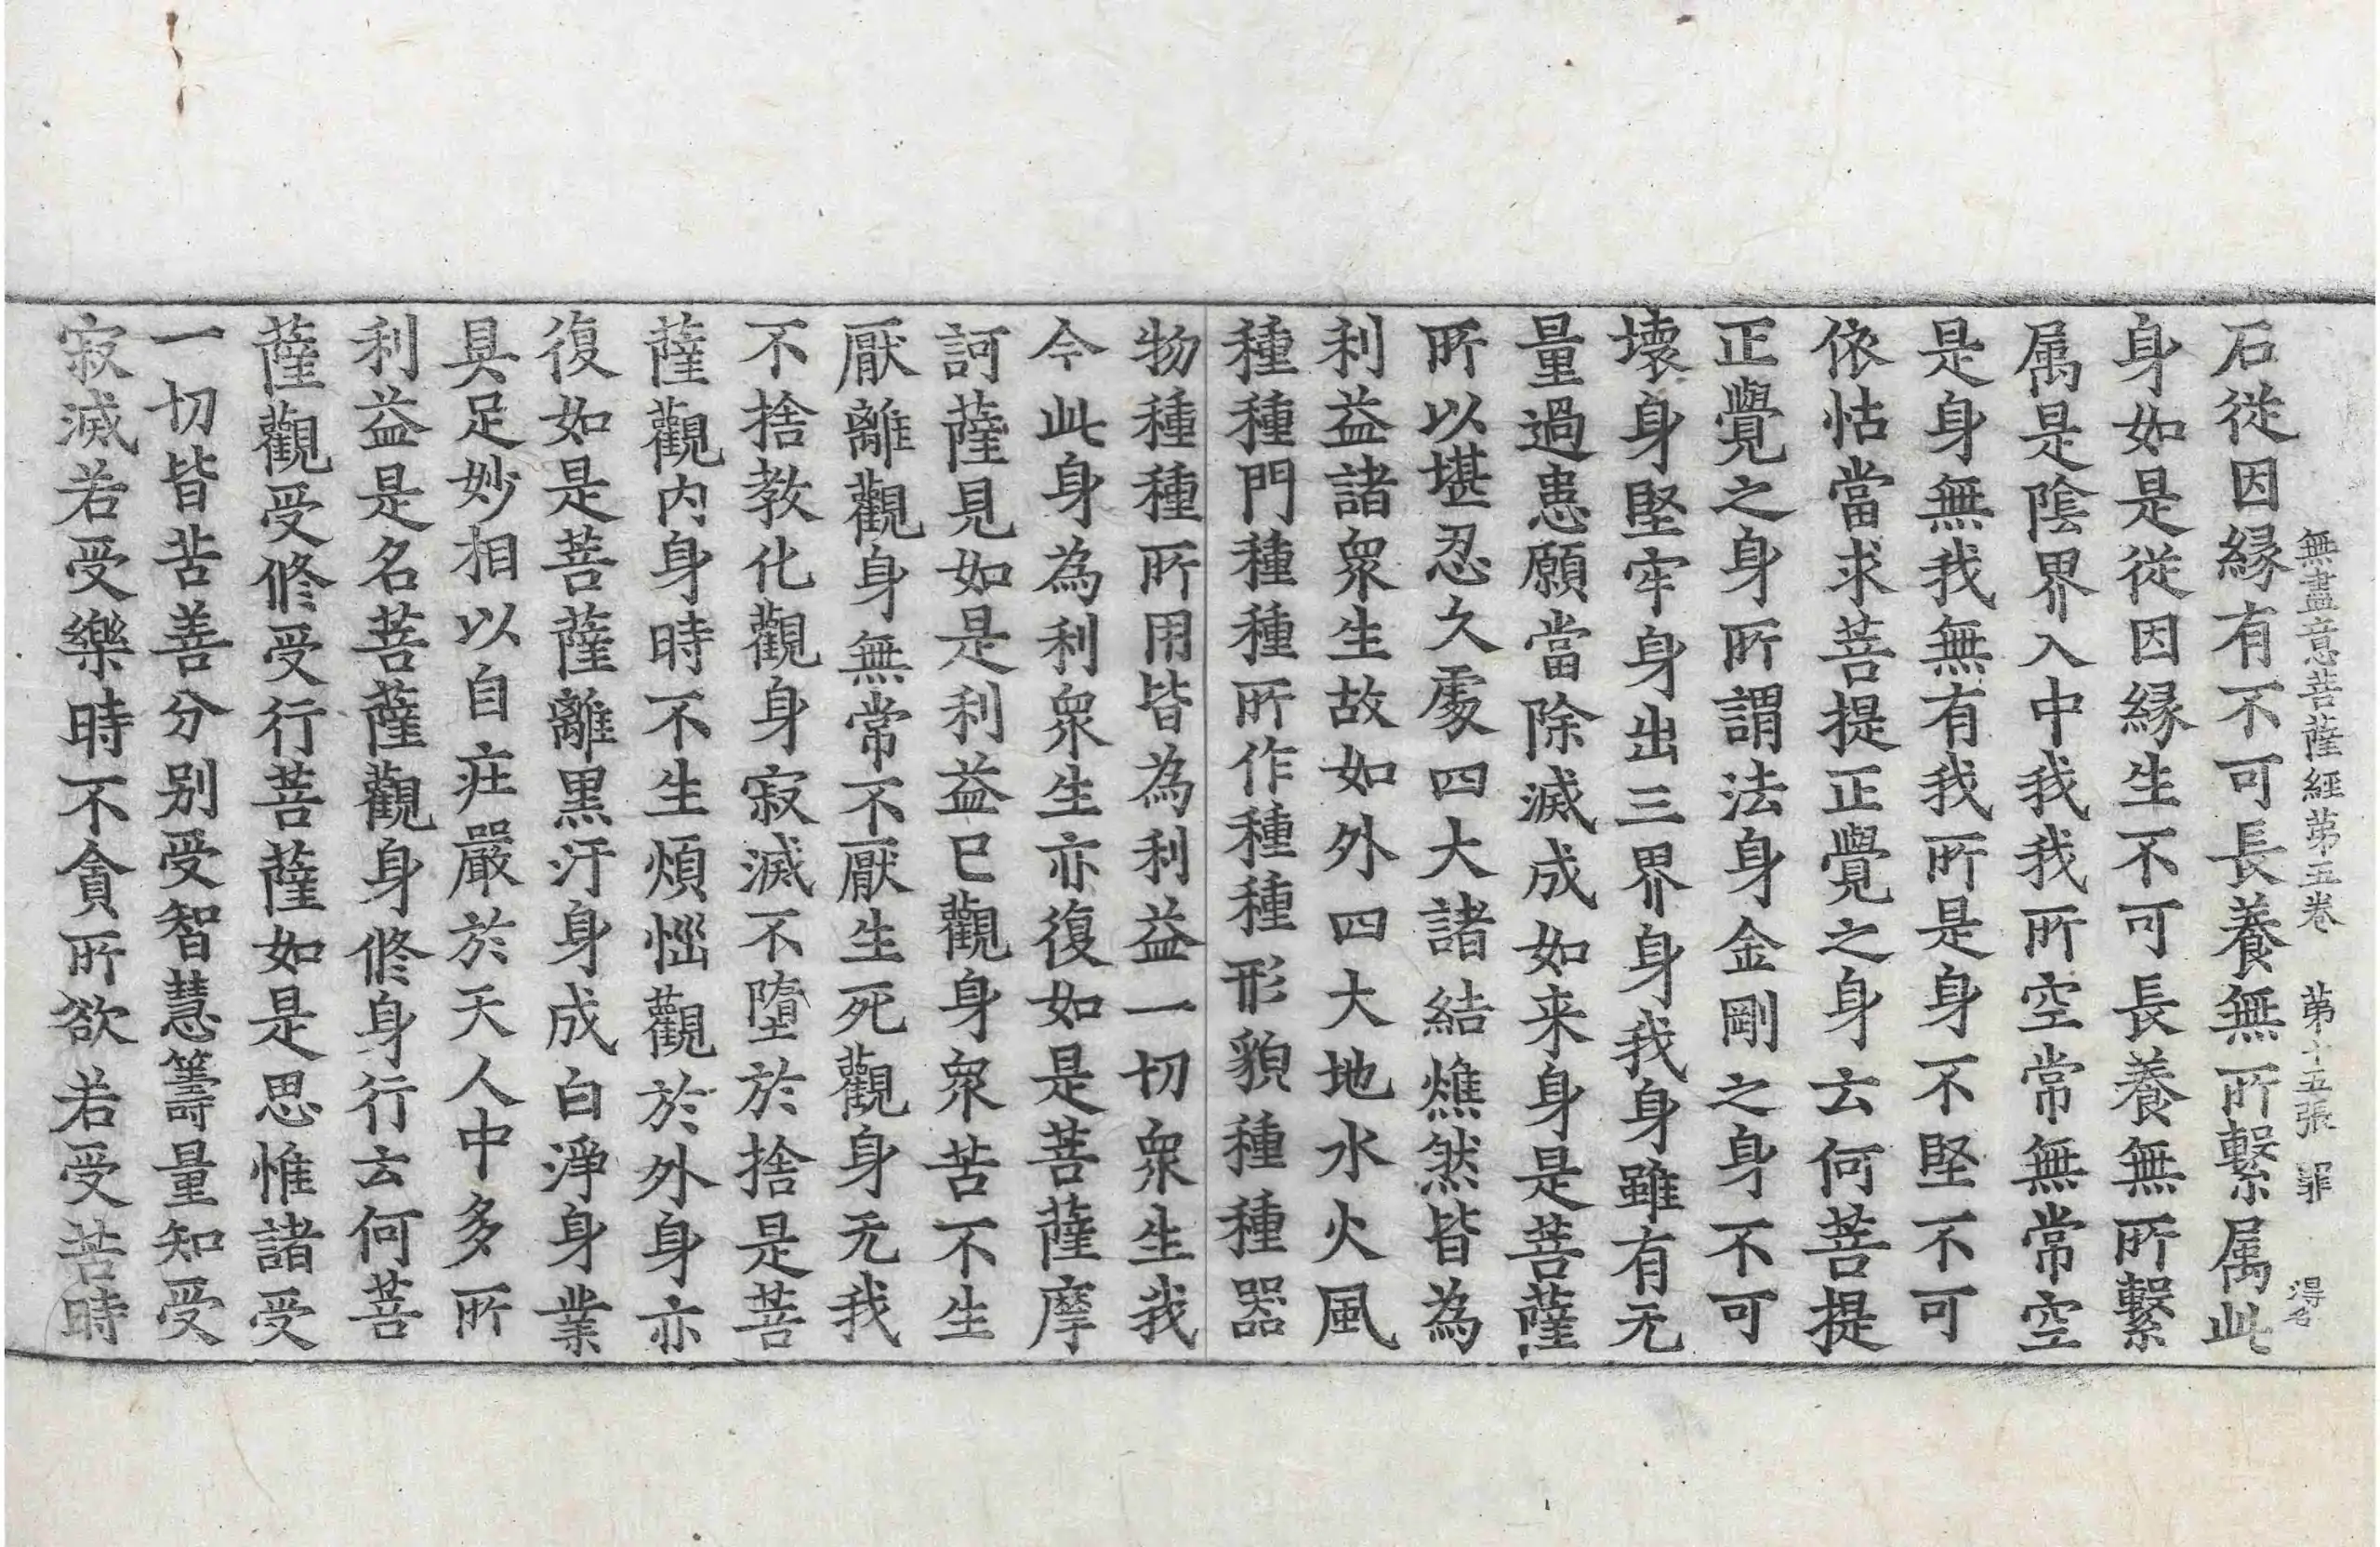 無盡意菩薩經第五卷　第十五張　罪　得名
石從因緣有不可長養無所繫属此
身如是從因緣生不可長養無所繫
属是陰界入中我我所空常無常空
是身無我無有我所是身不堅不可
依怙當求菩提正覺之身云何菩提
正覺之身所謂法身金剛之身不可
壞身堅牢身出三界身我身雖有无
量過患願當除滅成如来身是菩薩
所以堪忍久處四大諸結燋然皆為
利益諸衆生故如外四大地水火風
種種門種種所作種種形貌種種器
物種種所用皆為利益一切衆生我
今此身為利衆生亦復如是菩薩摩
訶薩見如是利益已觀身衆苦不生
厭離觀身無常不厭生死觀身无我
不捨教化觀身寂滅不墮於捨是菩
薩觀内身時不生煩惱觀於外身亦
復如是菩薩離黒汙身成白淨身業
具足妙相以自庄嚴於天人中多所
利益是名菩薩觀身修身行云何菩
薩觀受修受行菩薩如是思惟諸受
一切皆苦善分别受智慧籌量知受
寂滅若受樂時不貪所欲若受苦時